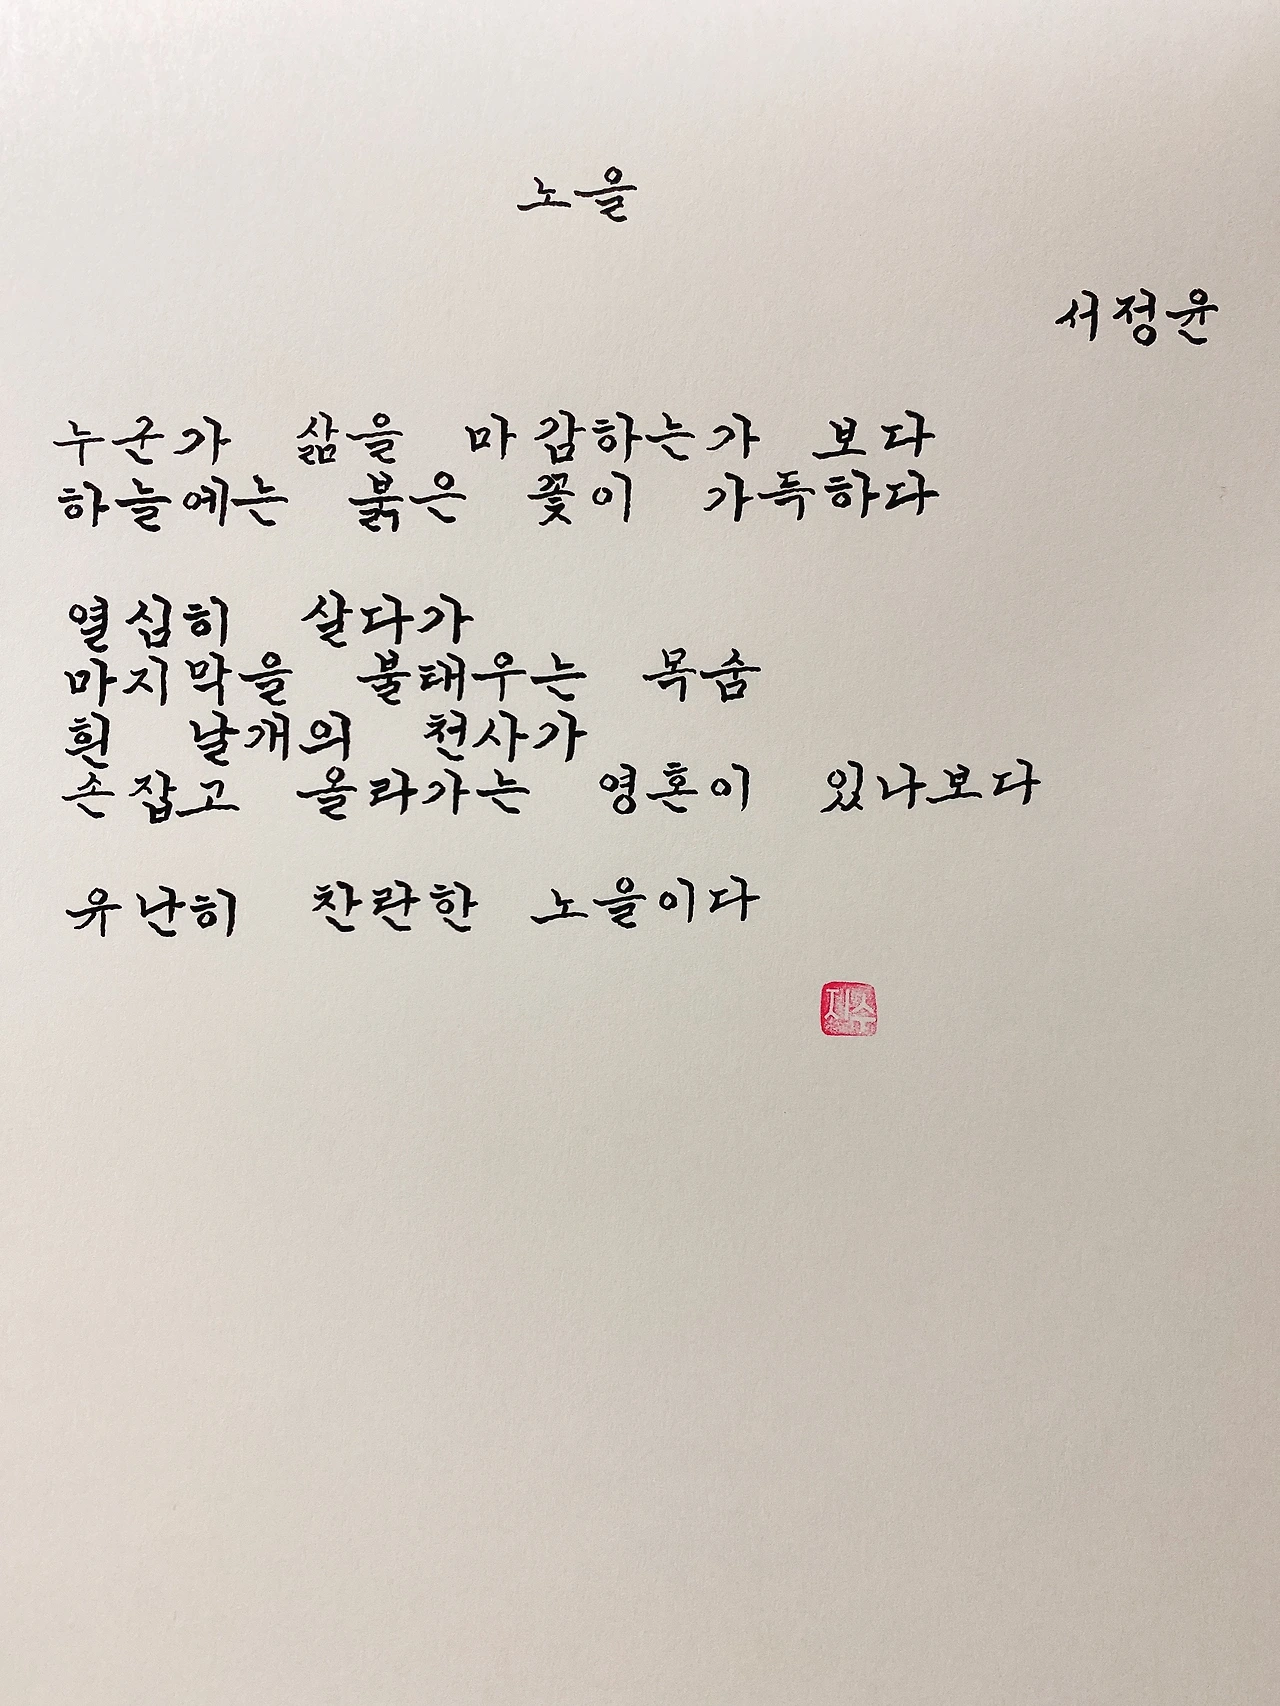 노을
서정윤
누군가 삶을 마감하는가 보다
하늘에는 붉은 꽃이 가득하다
열심히 살다가
마지막을 불태우는 목숨
흰 날개의 천사가
손잡고 올라가는 영혼이 있나보다
유난히 찬란한 노을이다